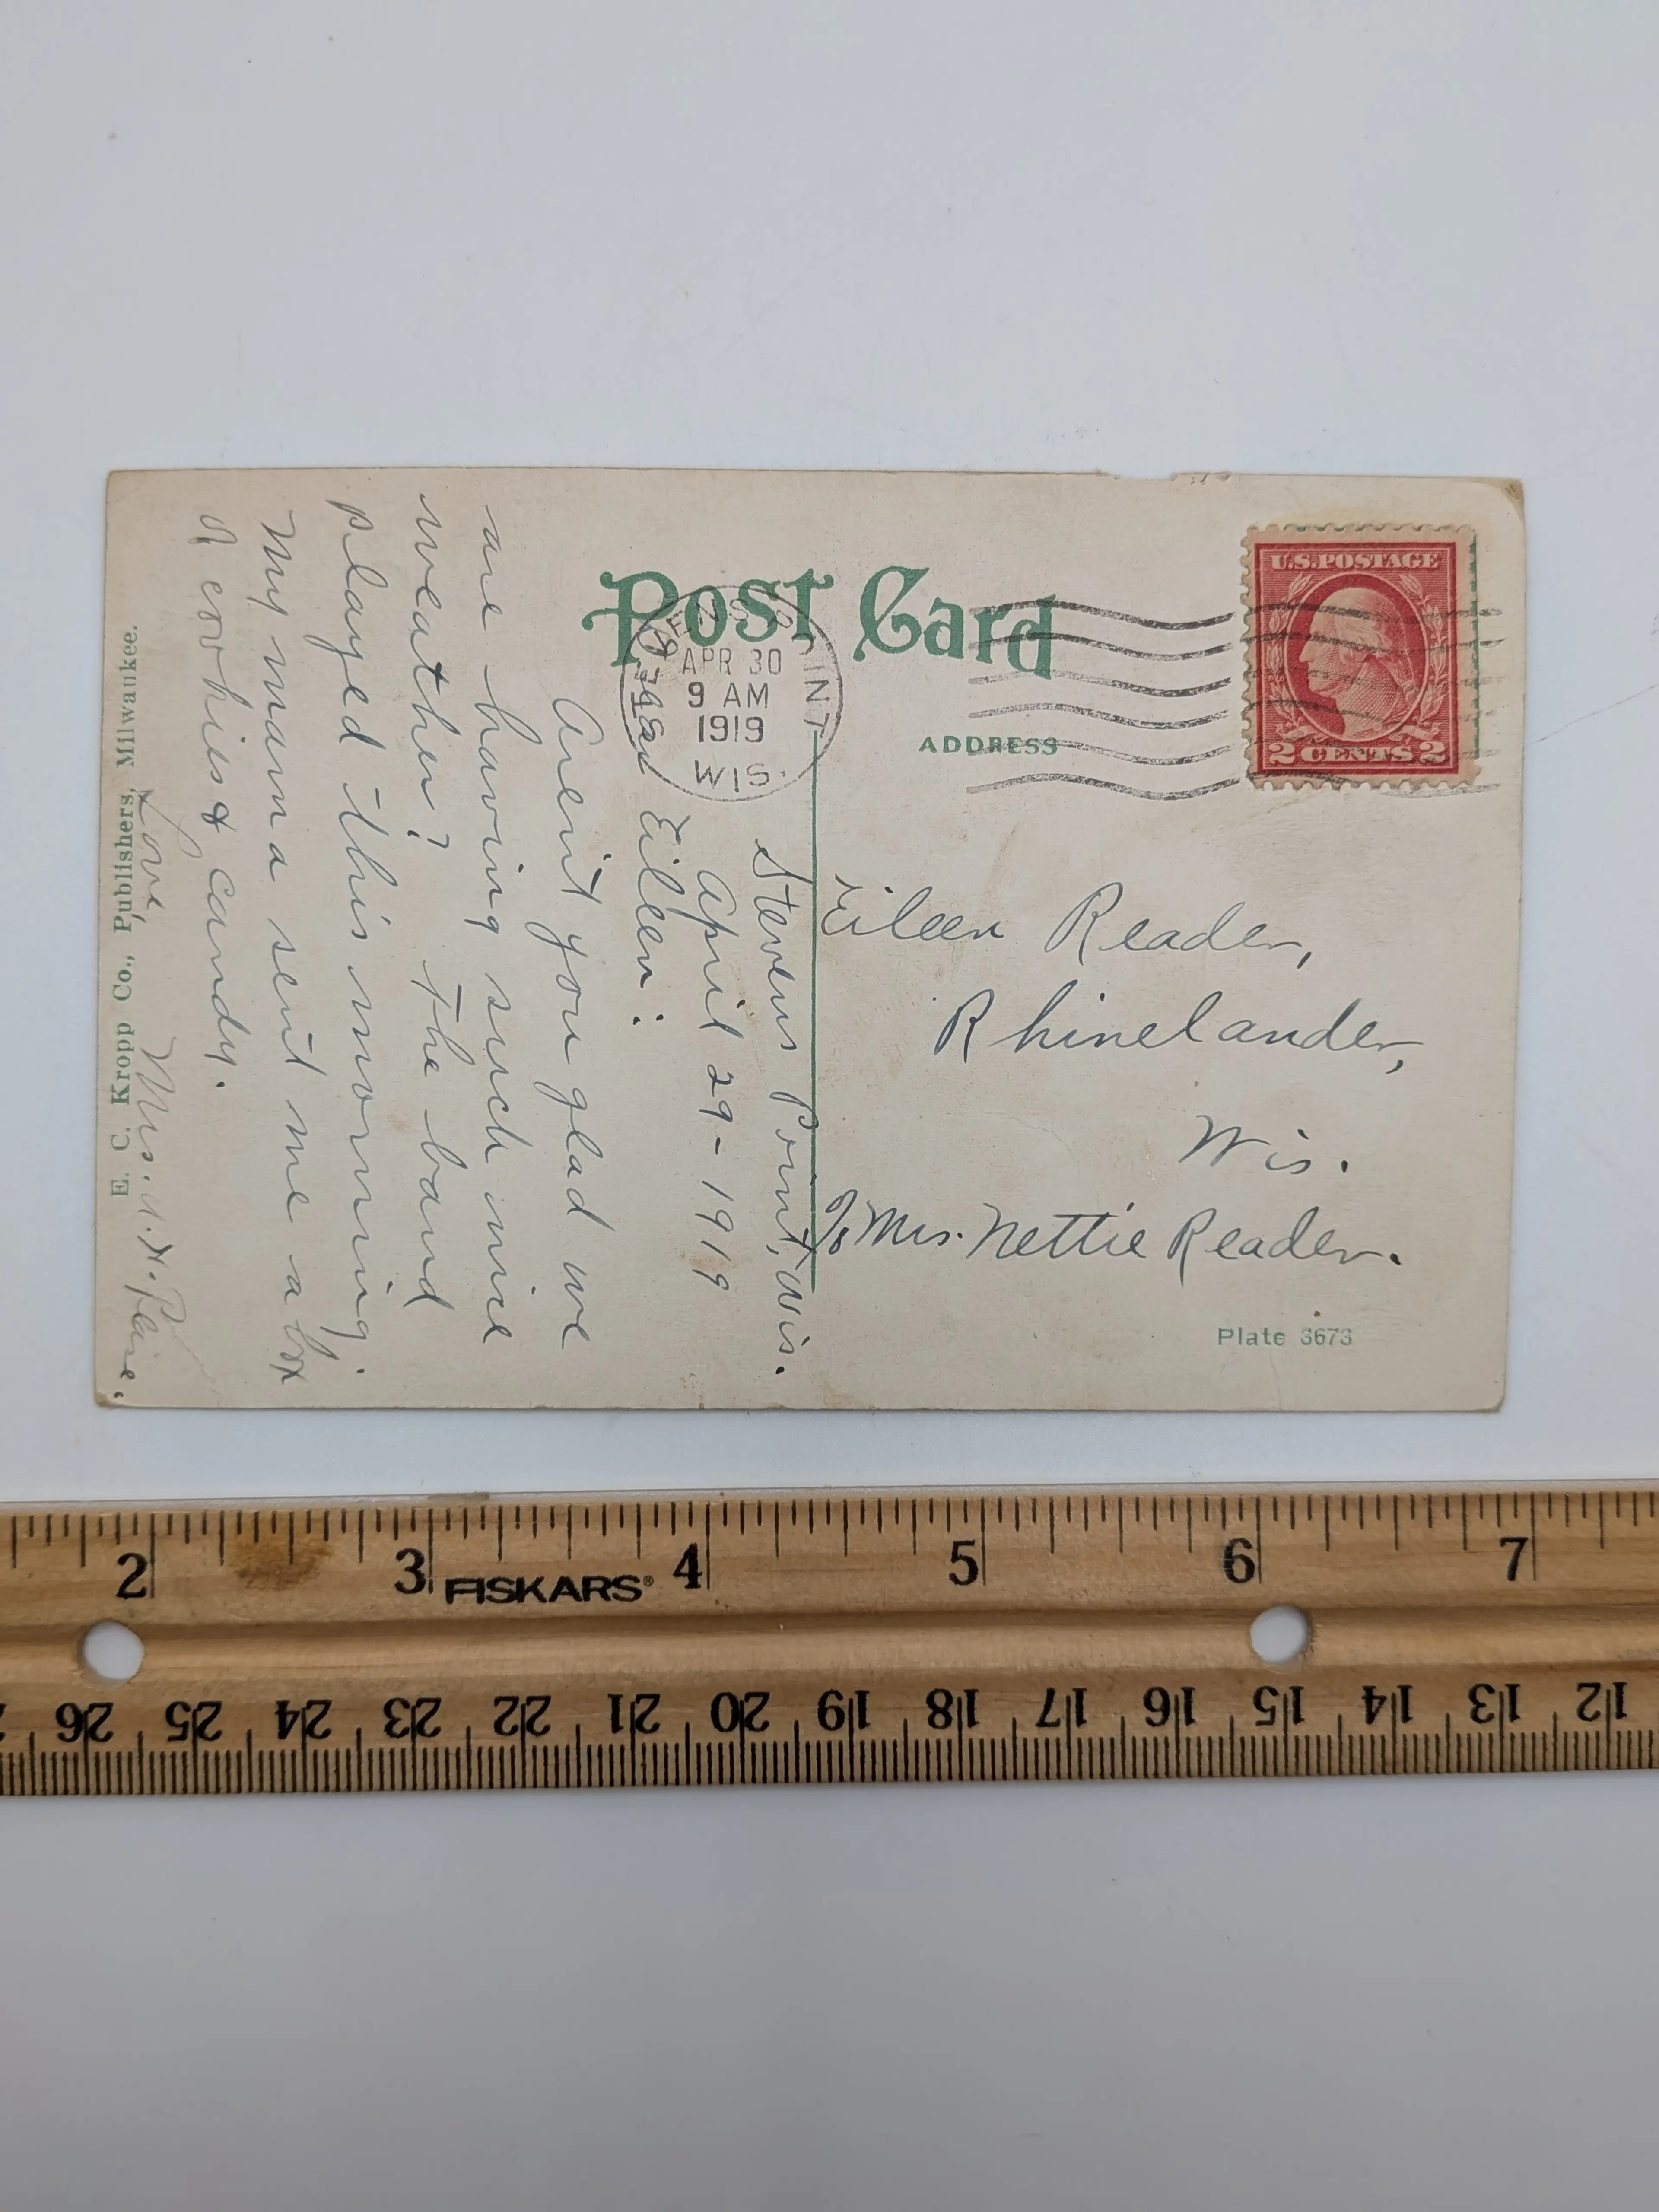 Post Card
STEVENS POINT
APR 30
9 AM
1919
WIS.
U.S. POSTAGE
2 CENTS 2
ADDRESS
Eileen Reader,
Rhinelander,
Wis.
℅ Mrs. Nettie Reader.
Plate 3673
Stevens Point, Wis.
April 29-1919
Dear Eileen:
Arent you glad we
are having such nice
weather? The band
played this morning.
My mama sent me a box
of cookies & candy.
Love,
Mrs.
E. C. Kropp Co., Publishers, Milwaukee.
2 3 4 5 6 7
FISKARS®
26 25 24 23 22 21 20 19 18 17 16 15 14 13 12